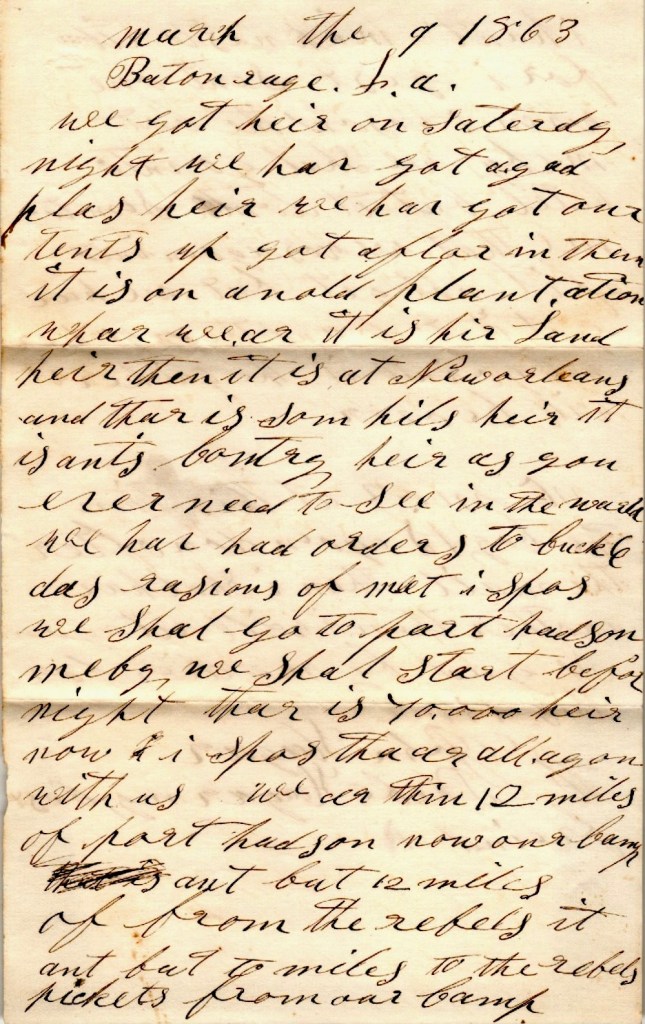 march the 9 1863
Baton rage. L.a.
we got heir on Saterdy
night we har got a gad
plas heir we har got our
tents up got a flor in them
it is on an old plant.ation
whar we ar it is hir Land
heir then it is at New orleans
and thar is som hils heir it
is as Contry heir as you
ever need to See in the warld
we har had orders to buck 6
das rasions of meet i Spos
we Shal go to part hadson
meby we Shal Start befor
night thar is 40.000 heir
now & i Spos tha ar all.agon
with us we ar thin 12 miles
of part hadson now our Camp
ant but 12 miles
of from the rebels it
ant but miles to the rebels
pickets from our Camp